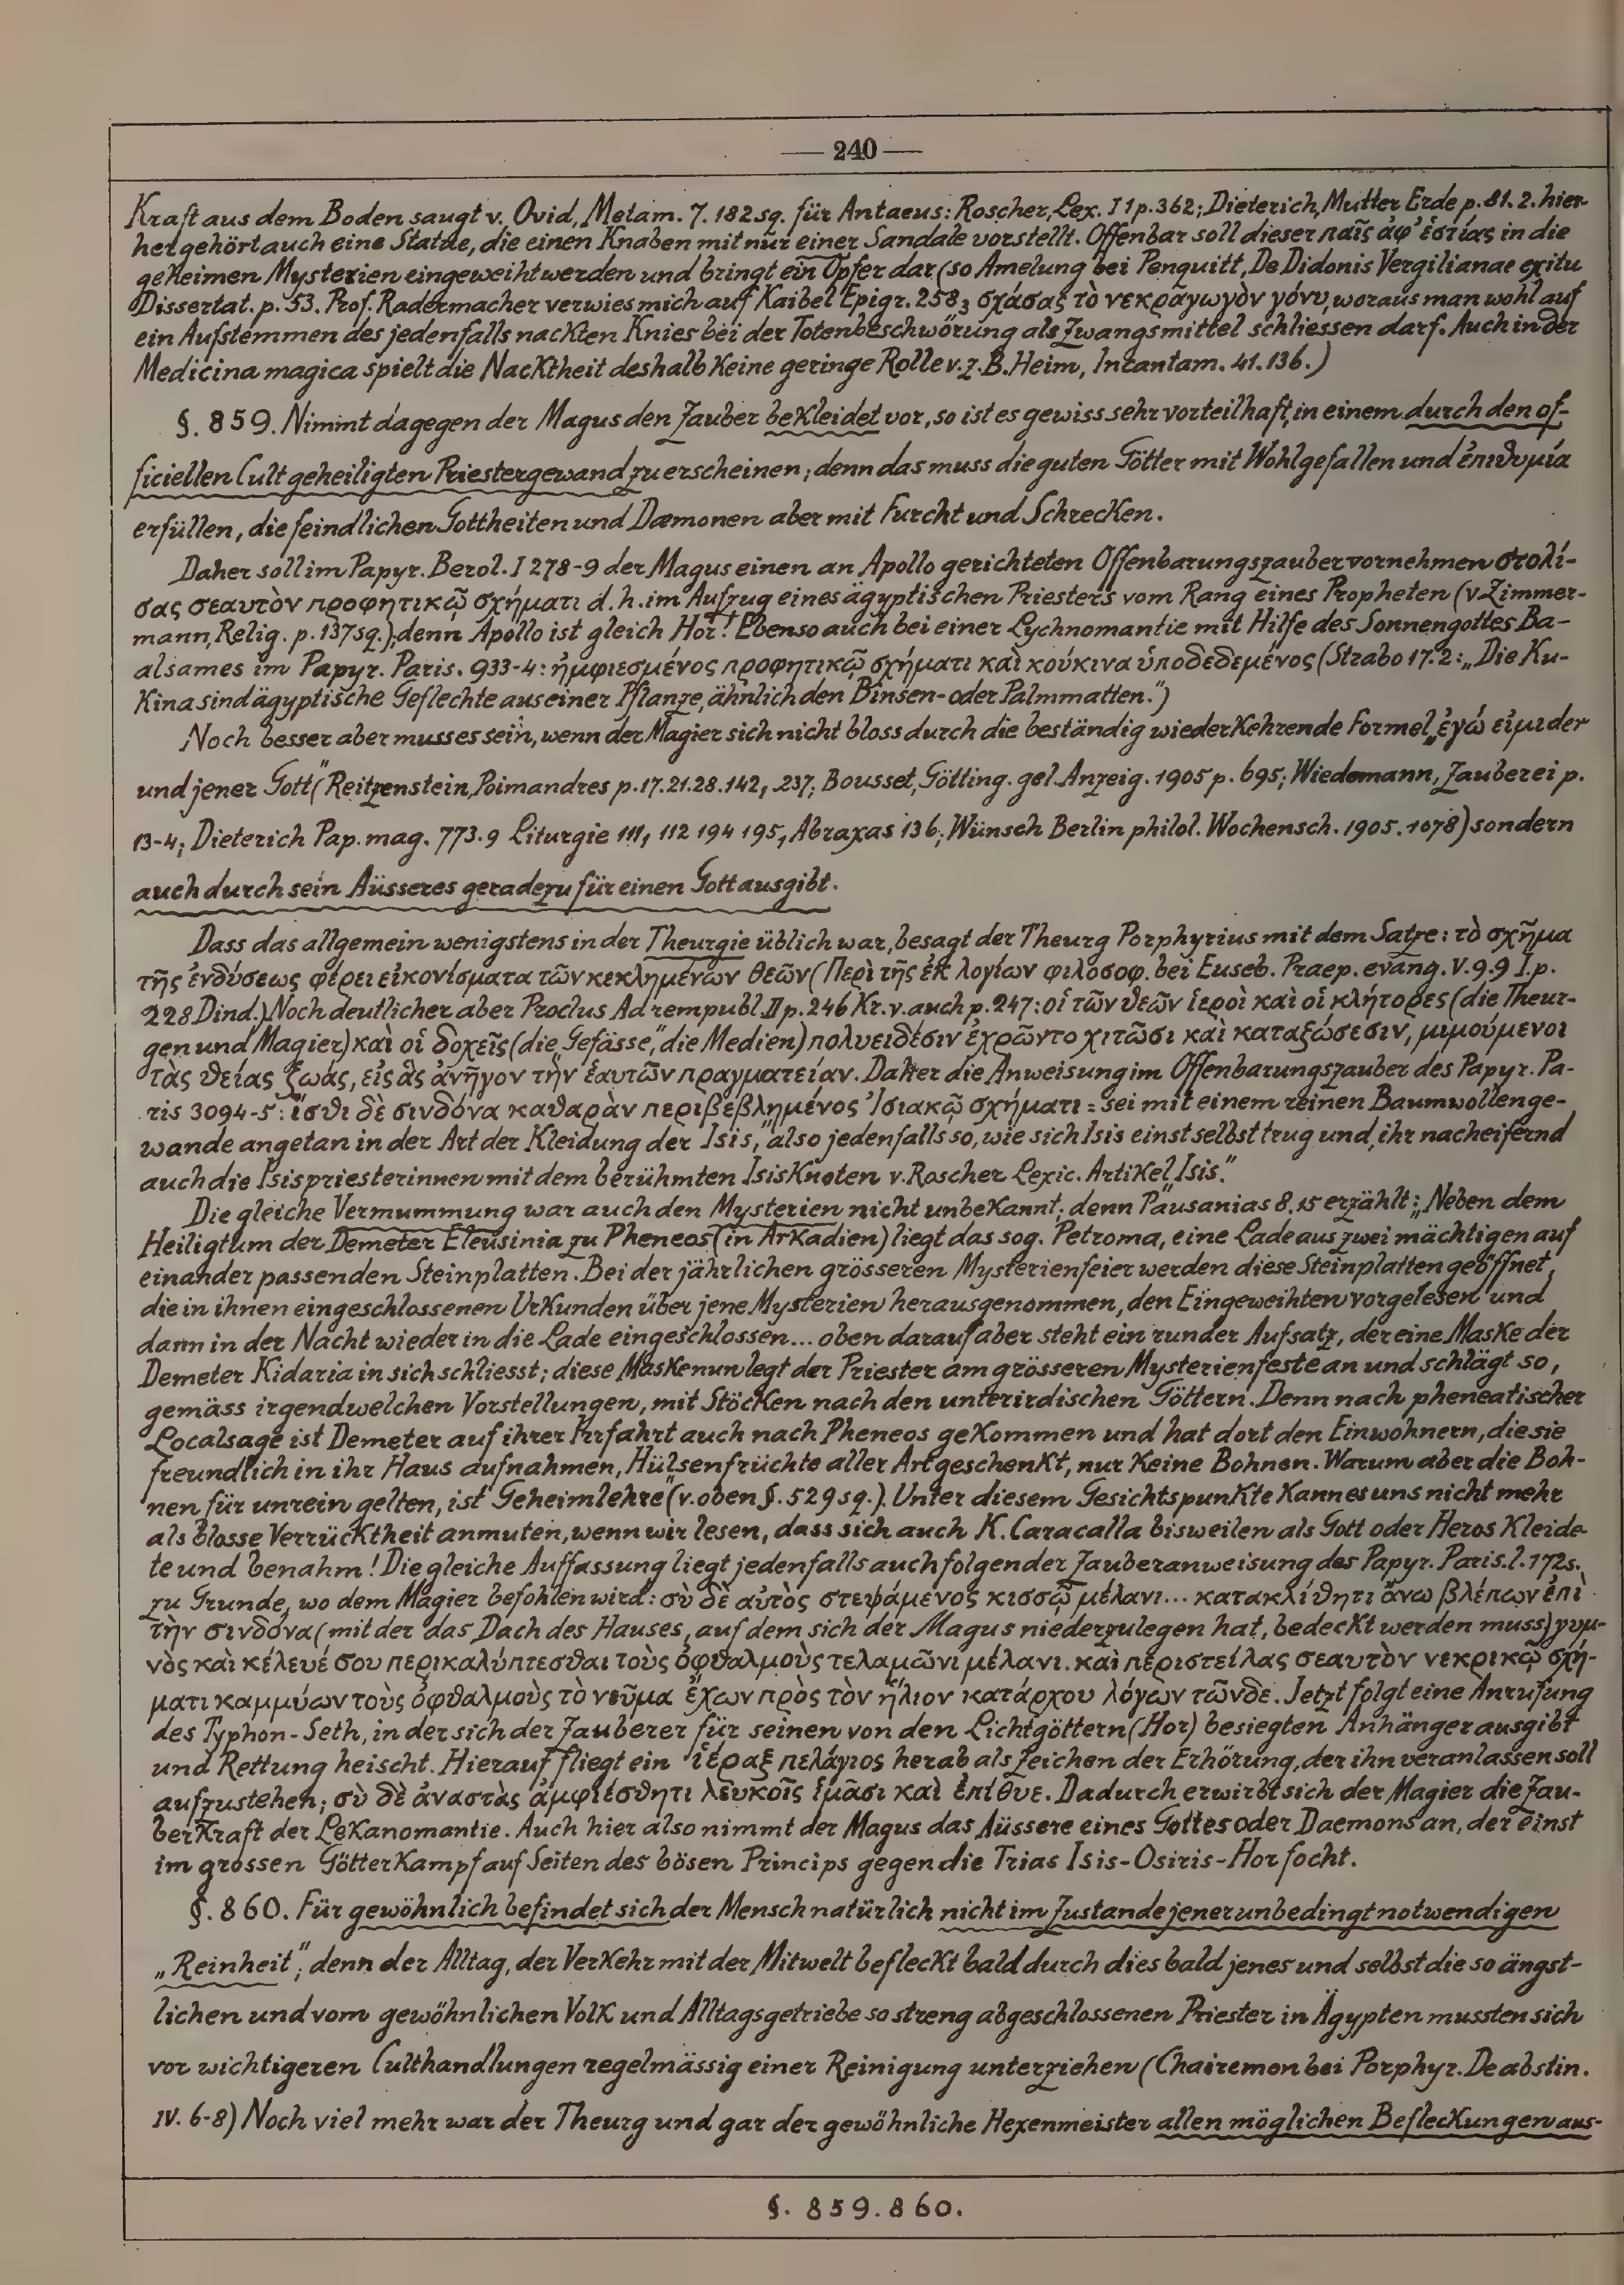 — 240 —
Kraft aus dem Boden saugt v. Ovid, Metam. 7. 182 sq. für Antaeus: Roscher, Lex. I 1 p. 362; Dieterich, Mutter Erde p. 81. 2. hier-
her gehört auch eine Statue, die einen Knaben mit nur einer Sandale vorstellt. Offenbar soll dieser παῖς ἀφ' ἑστίας in die
geheimen Mysterien eingeweiht werden und bringt ein Opfer dar (so Amelung bei Penquitt, De Didonis Vergilianae exitu
Dissertat. p. 53. Prof. Radermacher verwies mich auf Kaibel Epigr. 258₃ σχάσας τὸ νεκραγωγὸν γόνυ, woraus man wohl auf
ein Aufstemmen des jedenfalls nackten Knies bei der Totenbeschwörung als Zwangsmittel schliessen darf. Auch in der
Medicina magica spielt die Nacktheit deshalb keine geringe Rolle v. z. B. Heim, Incantam. 41. 136.)
§. 859. Nimmt dagegen der Magus den Zauber bekleidet vor, so ist es gewiss sehr vorteilhaft, in einem durch den of-
ficiellen Cult geheiligten Priestergewand zu erscheinen; denn das muss die guten Götter mit Wohlgefallen und ἐπιθυμία
erfüllen, die feindlichen Gottheiten und Dæmonen aber mit Furcht und Schrecken.
Daher soll im Papyr. Berol. I 278-9 der Magus einen an Apollo gerichteten Offenbarungszauber vornehmen στολί-
σας σεαυτὸν προφητικῷ σχήματι d. h. im Aufzug eines ägyptischen Priesters vom Rang eines Propheten (v. Zimmer-
mann, Relig. p. 137 sq.); denn Apollo ist gleich Hor! Ebenso auch bei einer Lychnomantie mit Hilfe des Sonnengottes Ba-
alsames im Papyr. Paris. 933-4: ἠμφιεσμένος προφητικῷ σχήματι καὶ κούκινα ὑποδεδεμένος (Strabo 17. 2: „Die Ku-
kina sind ägyptische Geflechte aus einer Pflanze, ähnlich den Binsen- oder Palmmatten.")
Noch besser aber muss es sein, wenn der Magier sich nicht bloss durch die beständig wiederkehrende Formel „ἐγώ εἰμι der
und jener Gott" (Reitzenstein, Poimandres p. 17. 21. 28. 142, 237; Bousset, Götting. gel. Anzeig. 1905 p. 695; Wiedemann, Zauberei p.
13-4; Dieterich Pap. mag. 773. 9 Liturgie 111, 112 194 195, Abraxas 136; Wünsch Berlin philol. Wochensch. 1905. 1078) sondern
auch durch sein Äusseres geradezu für einen Gott ausgibt.
Dass das allgemein wenigstens in der Theurgie üblich war, besagt der Theurg Porphyrius mit dem Satze: τὸ σχῆμα
τῆς ἐνδύσεως φέρει εἰκονίσματα τῶν κεκλημένων θεῶν (Περὶ τῆς ἐκ λογίων φιλοσοφ. bei Euseb. Praep. evang. V. 9. 9 I. p.
228 Dind.) Noch deutlicher aber Proclus Ad rempubl. II p. 246 Kr. v. auch p. 247: οἱ τῶν θεῶν ἱεροὶ καὶ οἱ κλήτορες (die Theur-
gen und Magier) καὶ οἱ δοχεῖς (die „Gefässe," die Medien) πολυειδέσιν ἐχρῶντο χιτῶσι καὶ καταζώσεσιν, μιμούμενοι
τὰς θείας ζωάς, εἰς ἃς ἀνῆγον τὴν ἑαυτῶν πραγματείαν. Daher die Anweisung im Offenbarungszauber des Papyr. Pa-
ris 3094-5: ἴσθι δὲ σινδόνα καθαρὰν περιβεβλημένος Ἰσιακῷ σχήματι = sei mit einem reinen Baumwollenge-
wande angetan in der Art der Kleidung der Isis," also jedenfalls so, wie sich Isis einst selbst trug und, ihr nacheifernd
auch die Isispriesterinnen mit dem berühmten Isisknoten v. Roscher Lexic. Artikel „Isis."
Die gleiche Vermummung war auch den Mysterien nicht unbekannt; denn Pausanias 8. 15 erzählt: „Neben dem
Heiligtum der Demeter Eleusinia zu Pheneos (in Arkadien) liegt das sog. Petroma, eine Lade aus zwei mächtigen auf
einander passenden Steinplatten. Bei der jährlichen grösseren Mysterienfeier werden diese Steinplatten geöffnet,
die in ihnen eingeschlossenen Urkunden über jene Mysterien herausgenommen, den Eingeweihten vorgelesen und
dann in der Nacht wieder in die Lade eingeschlossen... oben darauf aber steht ein runder Aufsatz, der eine Maske der
Demeter Kidaria in sich schliesst; diese Maske nun legt der Priester am grösseren Mysterienfeste an und schlägt so,
gemäss irgendwelchen Vorstellungen, mit Stöcken nach den unterirdischen Göttern. Denn nach pheneatischer
Localsage ist Demeter auf ihrer Irrfahrt auch nach Pheneos gekommen und hat dort den Einwohnern, die sie
freundlich in ihr Haus aufnahmen, Hülsenfrüchte aller Art geschenkt, nur keine Bohnen. Warum aber die Boh-
nen für unrein gelten, ist Geheimlehre" (v. oben §. 529 sq.). Unter diesem Gesichtspunkte kann es uns nicht mehr
als blosse Verrücktheit anmuten, wenn wir lesen, dass sich auch K. Caracalla bisweilen als Gott oder Heros kleide-
te und benahm! Die gleiche Auffassung liegt jedenfalls auch folgender Zauberanweisung des Papyr. Paris. l. 172 s.
zu Grunde, wo dem Magier befohlen wird: σὺ δὲ αὐτὸς στεψάμενος κισσῷ μέλανι... κατακλίθητι ἄνω βλέπων ἐπὶ
τὴν σινδόνα (mit der das Dach des Hauses, auf dem sich der Magus niederzulegen hat, bedeckt werden muss) γυμ-
νὸς καὶ κέλευέ σου περικαλύπτεσθαι τοὺς ὀφθαλμοὺς τελαμῶνι μέλανι. καὶ περιστείλας σεαυτὸν νεκρικῷ σχή-
ματι καμμύων τοὺς ὀφθαλμοὺς τὸ νεῦμα ἔχων πρὸς τὸν ἥλιον κατάρχου λόγων τῶνδε. Jetzt folgt eine Anrufung
des Typhon-Seth, in der sich der Zauberer für seinen von den Lichtgöttern (Hor) besiegten Anhänger ausgibt
und Rettung heischt. Hierauf fliegt ein ἱέραξ πελάγιος herab als Zeichen der Erhörung, der ihn veranlassen soll
aufzustehen; σὺ δὲ ἀναστὰς ἀμφιέσθητι λευκοῖς ἱμᾶσι καὶ ἐπίθυε. Dadurch erwirbt sich der Magier die Zau-
berkraft der Lekanomantie. Auch hier also nimmt der Magus das Äussere eines Gottes oder Daemons an, der einst
im grossen Götterkampf auf Seiten des bösen Princips gegen die Trias Isis-Osiris-Hor focht.
§. 860. Für gewöhnlich befindet sich der Mensch natürlich nicht im Zustande jener unbedingt notwendigen
„Reinheit"; denn der Alltag, der Verkehr mit der Mitwelt befleckt bald durch dies bald jenes und selbst die so ängst-
lichen und vom gewöhnlichen Volk und Alltagsgetriebe so streng abgeschlossenen Priester in Ägypten mussten sich
vor wichtigeren Culthandlungen regelmässig einer Reinigung unterziehen (Chairemon bei Porphyr. De abstin.
IV. 6-8) Noch viel mehr war der Theurg und gar der gewöhnliche Hexenmeister allen möglichen Befleckungen aus-
§. 859. 860.